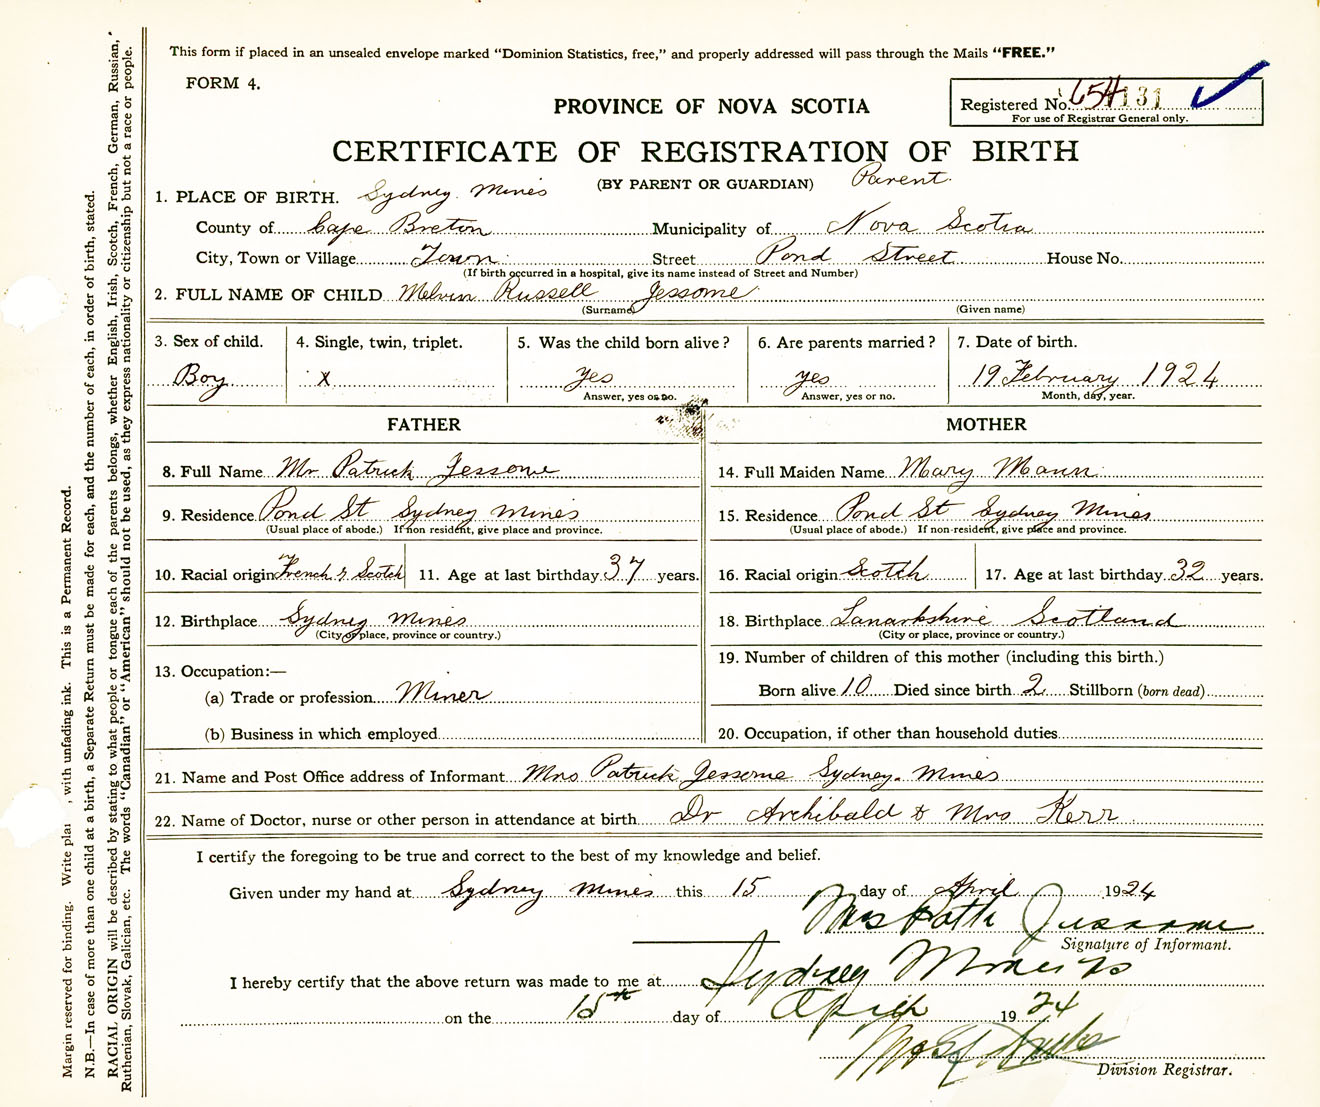 This form if placed in an unsealed envelope marked "Dominion Statistics, free," and properly addressed will pass through the Mails "FREE."
FORM 4.
Registered No. 654131
For use of Registrar General only.
PROVINCE OF NOVA SCOTIA
CERTIFICATE OF REGISTRATION OF BIRTH
(BY PARENT OR GUARDIAN) Parent
1. PLACE OF BIRTH. Sydney Mines
County of Cape Breton Municipality of Nova Scotia
City, Town or Village Town Street Pond Street House No.
(If birth occurred in a hospital, give its name instead of Street and Number)
2. FULL NAME OF CHILD Melvin Russell Jessome
(Surname) (Given name)
3. Sex of child. 4. Single, twin, triplet. 5. Was the child born alive? 6. Are parents married? 7. Date of birth.
Boy X Yes yes 19 February 1924
Answer, yes or no. Answer, yes or no. Month, day, year.
FATHER MOTHER
8. Full Name Mr Patrick Jessome 14. Full Maiden Name Mary Mann
9. Residence Pond St Sydney Mines 15. Residence Pond St Sydney Mines
(Usual place of abode.) If non resident, give place and province. (Usual place of abode.) If non-resident, give place and province.
10. Racial origin French & Scotch 11. Age at last birthday 37 years. 16. Racial origin Scotch 17. Age at last birthday 32 years.
12. Birthplace Sydney Mines 18. Birthplace Lanarkshire Scotland
(City or place, province or country.) (City or place, province or country.)
13. Occupation:— 19. Number of children of this mother (including this birth.)
(a) Trade or profession Miner Born alive 10 Died since birth 2 Stillborn (born dead)
(b) Business in which employed 20. Occupation, if other than household duties
21. Name and Post Office address of Informant Mrs Patrick Jessome Sydney Mines
22. Name of Doctor, nurse or other person in attendance at birth Dr Archibald & Mrs Kerr
I certify the foregoing to be true and correct to the best of my knowledge and belief.
Given under my hand at Sydney Mines this 15 day of April 1924
Mrs Patk Jessome
Signature of Informant.
I hereby certify that the above return was made to me at Sydney Mines
on the 15th day of April 1924
Division Registrar.
Margin reserved for binding. Write plai , with unfading ink. This is a Permanent Record.
N.B.—In case of more than one child at a birth, a Separate Return must be made for each, and the number of each, in order of birth, stated.
RACIAL ORIGIN will be described by stating to what people or tongue each of the parents belongs, whether English, Irish, Scotch, French, German, Russian,
Ruthenian, Slovak, Galician, etc. The words "Canadian" or "American" should not be used, as they express nationality or citizenship but not a race or people.